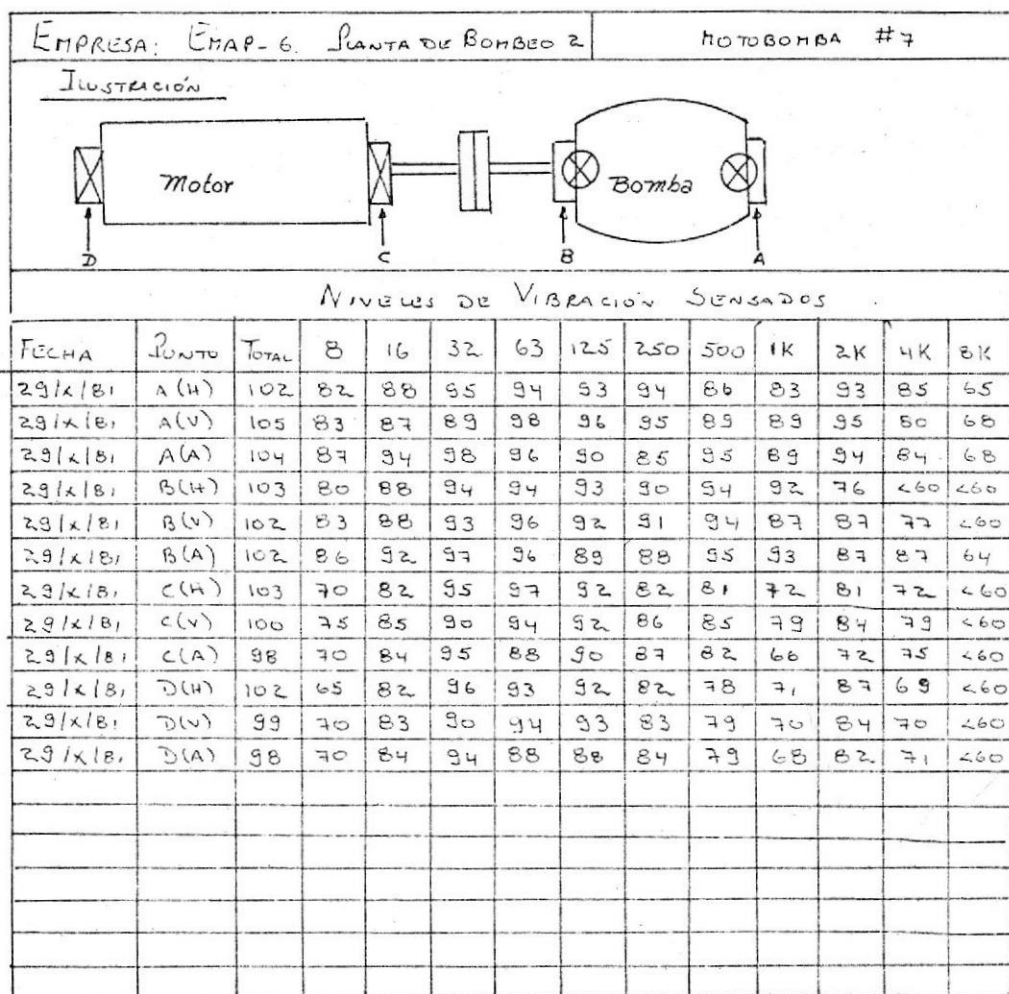 EMPRESA: EMAP-G. PLANTA DE BOMBEO 2 MOTOBOMBA #7
ILUSTRACIÓN
Motor Bomba
D C B A
NIVELES DE VIBRACIÓN SENSADOS.
FECHA PUNTO TOTAL 8 16 32 63 125 250 500 1K 2K 4K 8K
29/X/81 A(H) 102 82 88 95 94 93 94 86 83 93 85 65
29/X/81 A(V) 105 83 87 89 98 96 95 89 89 95 80 68
29/X/81 A(A) 104 87 94 98 96 90 85 95 89 94 84 68
29/X/81 B(H) 103 80 88 94 94 93 90 94 92 76 <60 <60
29/X/81 B(V) 102 83 88 93 96 92 91 94 87 87 77 <60
29/X/81 B(A) 102 86 92 97 96 89 88 95 93 87 87 64
29/X/81 C(H) 103 70 82 95 97 92 82 81 72 81 72 <60
29/X/81 C(V) 100 75 85 90 94 92 86 85 79 84 79 <60
29/X/81 C(A) 98 70 84 95 88 90 87 82 66 72 75 <60
29/X/81 D(H) 102 65 82 96 93 92 82 78 71 87 69 <60
29/X/81 D(V) 99 70 83 90 94 93 83 79 70 84 70 <60
29/X/81 D(A) 98 70 84 94 88 88 84 79 68 82 71 <60